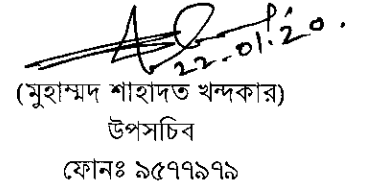 22-01-20.
(মুহাম্মদ শাহাদত খন্দকার)
উপসচিব
ফোনঃ ৯৫৭৭৯৭৯